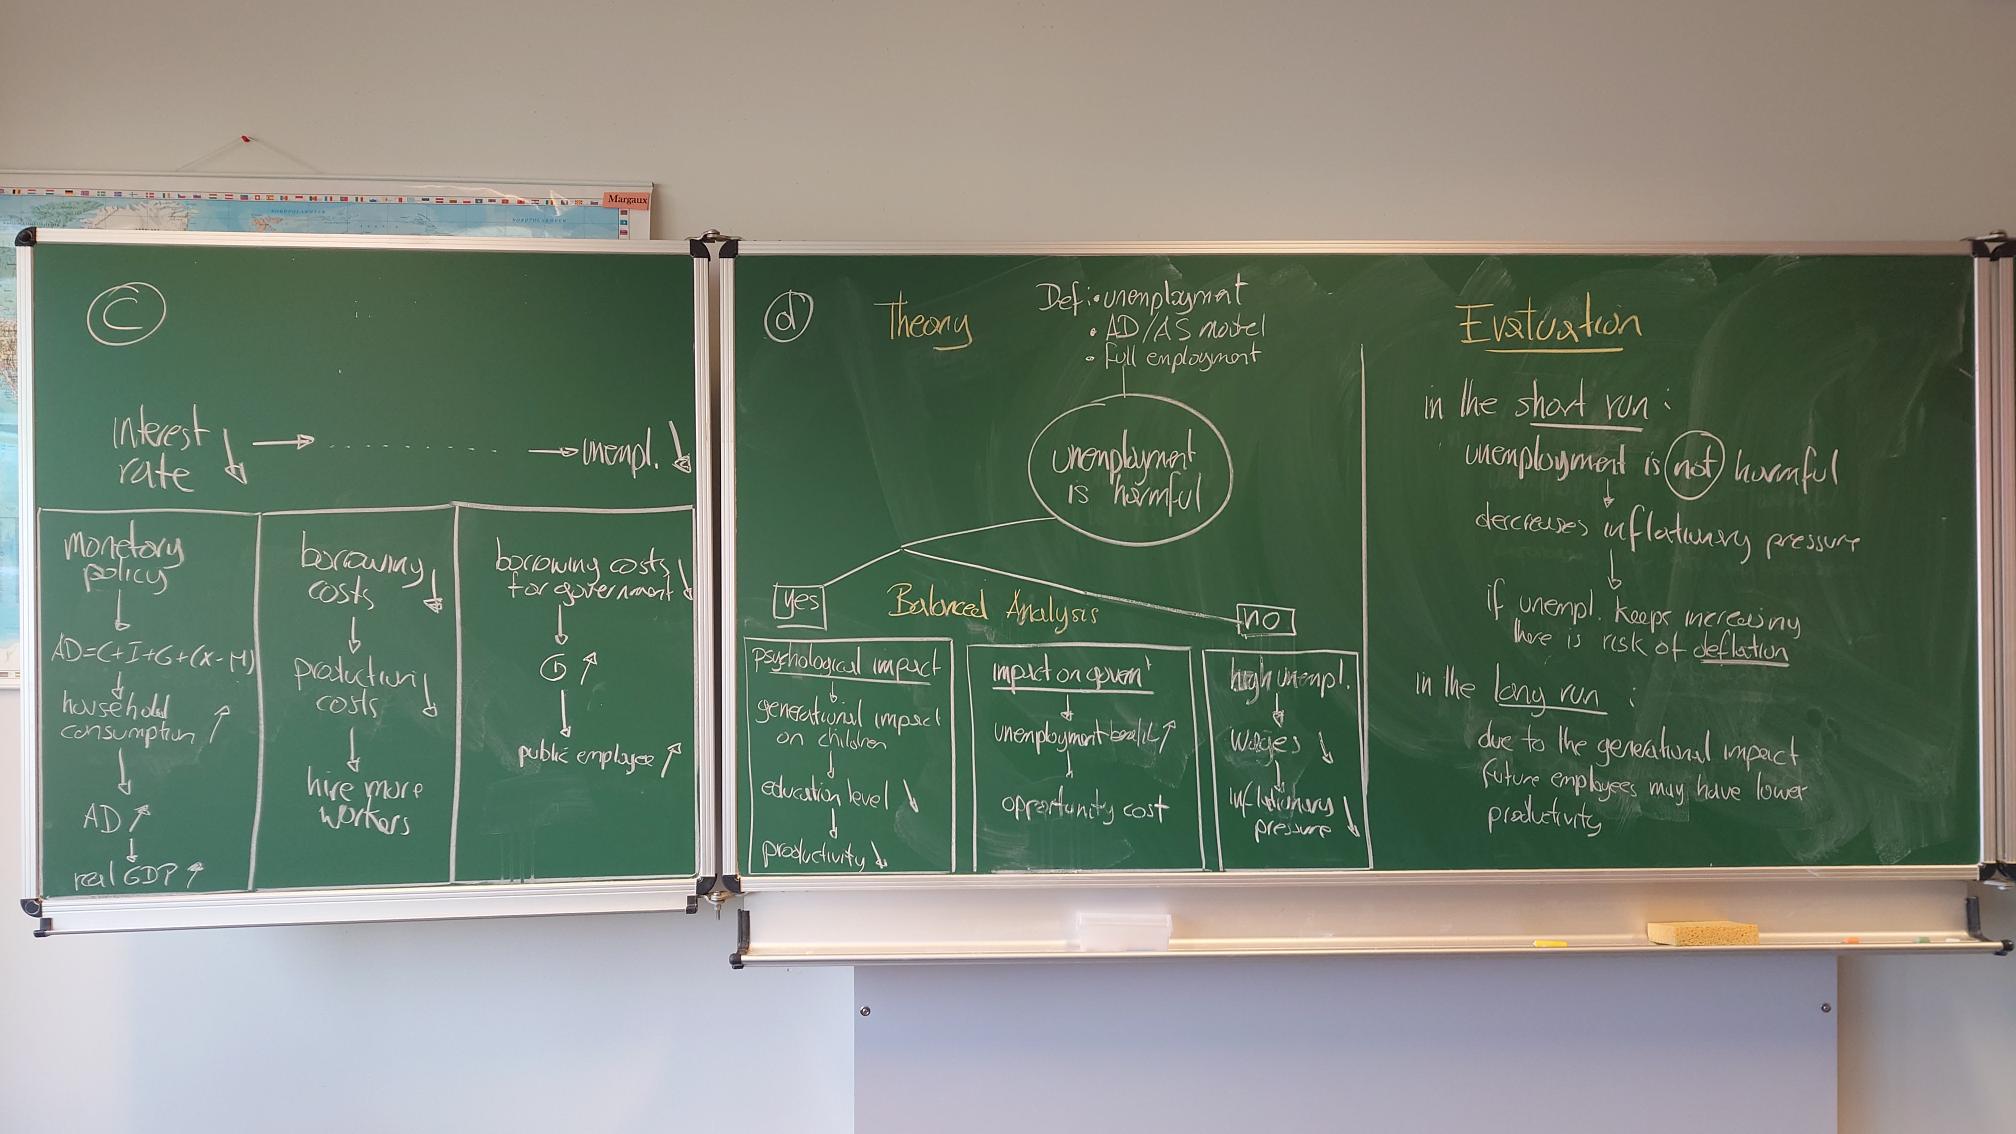 Margaux
NORDPOLARMEER
NORDPOLARMEER
C
interest ↓ → ........ → unempl. ↓
rate
monetary
policy
↓
AD=C+I+G+(X-M)
↓
household
consumption ↑
↓
AD ↑
↓
real GDP ↑
borrowing
costs ↓
↓
production
costs ↓
↓
hire more
workers
borrowing costs ↓
for government
↓
G ↑
↓
public employee ↑
d
Theory
Def: • unemployment
• AD/AS model
• full employment
unemployment
is harmful
yes
Balanced Analysis
no
psychological impact
↓
generational impact
on children
↓
education level ↓
↓
productivity ↓
impact on governt
↓
unemployment benefit ↑
↓
opportunity cost
high unempl.
↓
wages ↓
↓
inflationary ↓
pressure
Evaluation
in the short run :
unemployment is not harmful
↓
decreases inflationary pressure
↓
if unempl. keeps increasing
there is risk of deflation
in the long run :
due to the generational impact
future employees may have lower
productivity